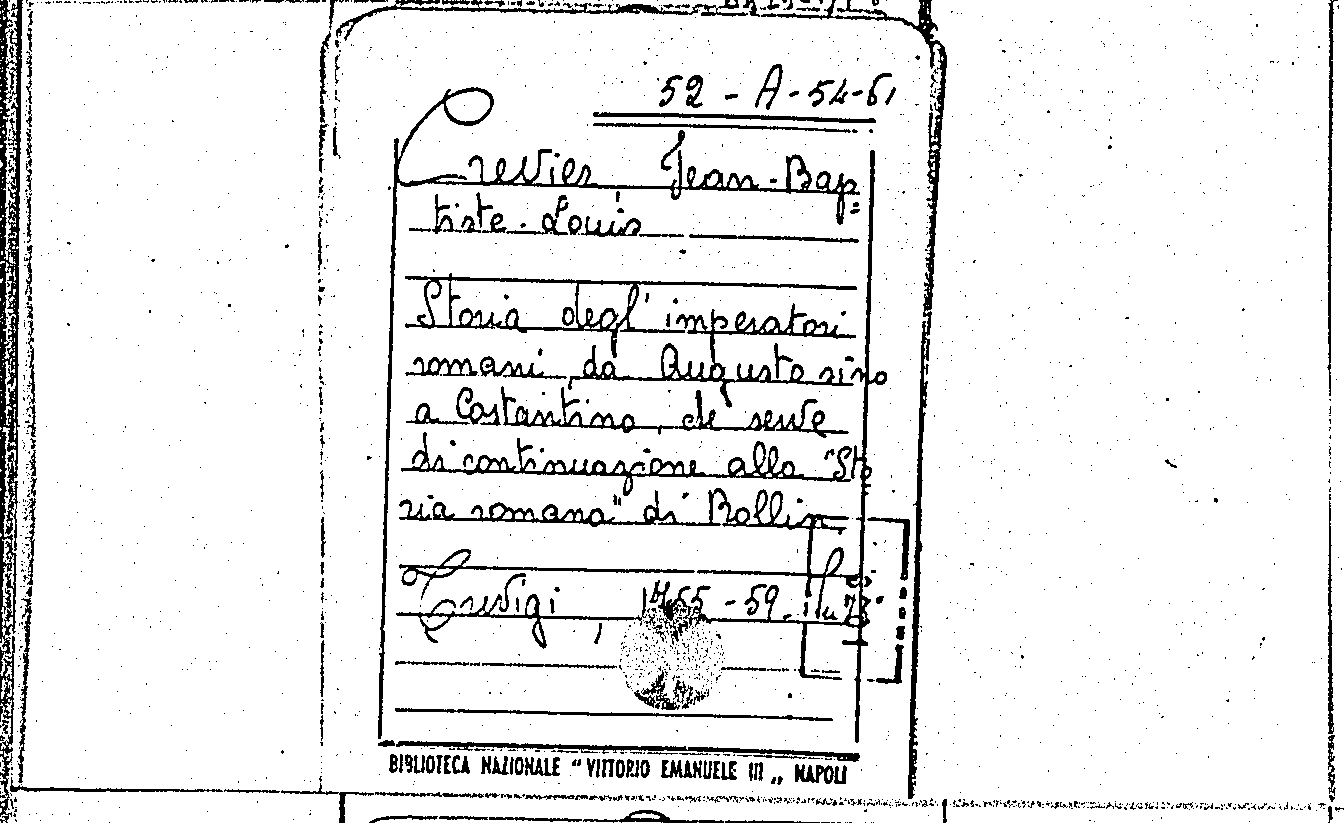 52 - A - 54-61
Crevier, Jean-Bap=
tiste-Louis
Storia degl' imperatori
romani, da Augusto sino
a Costantino, che serve
di continuazione alla "Sto
ria romana" di Rollin.
Trevigi, -59.
BIBLIOTECA NAZIONALE "VITTORIO EMANUELE III„ NAPOLI